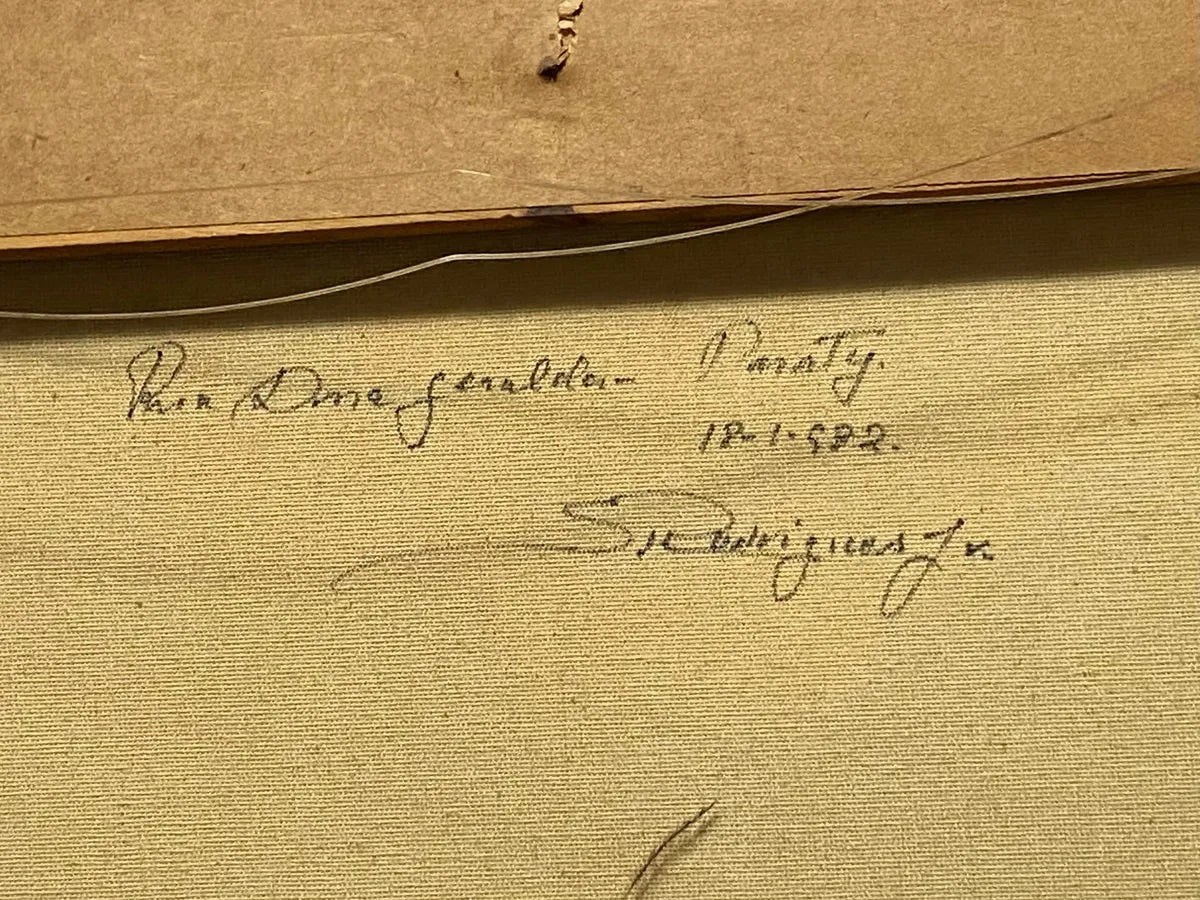 Para Dona Geralda - Paraty.
18-1-982.
Rodrigues Jr